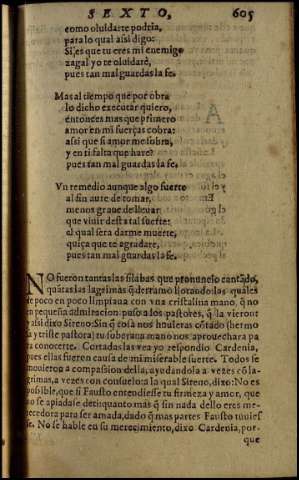 SEXTO, 605
como oluidarte podria,
para lo qual assi digo:
Si, es que tu eres mi enemigo
zagal yo te oluidarè,
pues tan mal guardas la fe.
Mas al tiempo que por obra
lo dicho executar quiero,
entonces mas que primero
amor en mi fuerças cobra:
assi que si amor me sobra,
y en ti falta que harè?
pues tan mal guardas la fe.
Vn remedio aunque algo fuerte
al fin aurè de tomar,
menos graue de lleuar
que viuir desta tal suerte,
el qual sera darme muerte,
quiça que te agradarè,
pues tan mal guardas la fe.
NO fueron tantas las silabas que pronunciò cantãdo,
quãtas las lagrimas q̃ derramo llorando las quales
de poco en poco limpiaua con vna cristalina mano, q̃ no
en pequeña admiracion puso a los pastores, q̃ la vieron
y assi dixo Sireno: Sin q̃ cosa nos houieras cõtado (hermo
sa y triste pastora) tu soberana mano nos aprouechara pa
ra conocerte. Cortadas las vea yo respondio Cardenia,
pues ellas fueron causa de mi miserable suerte. Todos se
mouieron a compassion della, ayudandola a vezes cõ la-
grimas, a vezes con consuelos a la qual Sireno, dixo: No es
possible, que si Fausto entendiesse tu firmeza y amor, que
no se apiadase de ti, quanto mas q̃ sin nada dello eres me-
recedora para ser amada, dado q̃ mas partes Fausto tuuies
se. No se hable en su merecimiento, dixo Cardenia, por-
que